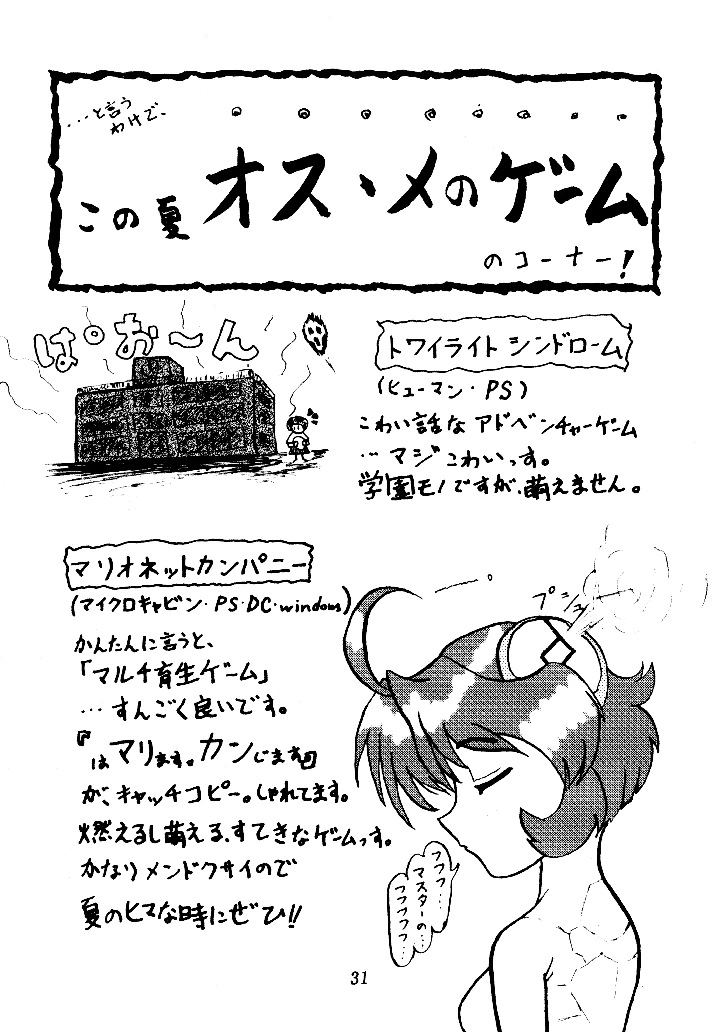 …と言う
わけで、
この夏 オススメのゲーム
のコーナー!
ぱお〜ん
トワイライトシンドローム
(ヒューマン・PS)
こわい話なアドベンチャーゲーム
…マジこわいっす。
学園モノですが、萌えません。
マリオネットカンパニー
(マイクロキャビン・PS・DC・windows)
かんたんに言うと、
「マルチ育生ゲーム」
…すんごく良いです。
『はマリます。カンじます』
が、キャッチコピー。しゃれてます。
燃えるし萌える、すてきなゲームっす。
かなりメンドクサイので
夏のヒマな時にぜひ!!
フフフ…
マスターの…
フフフフフ…
31